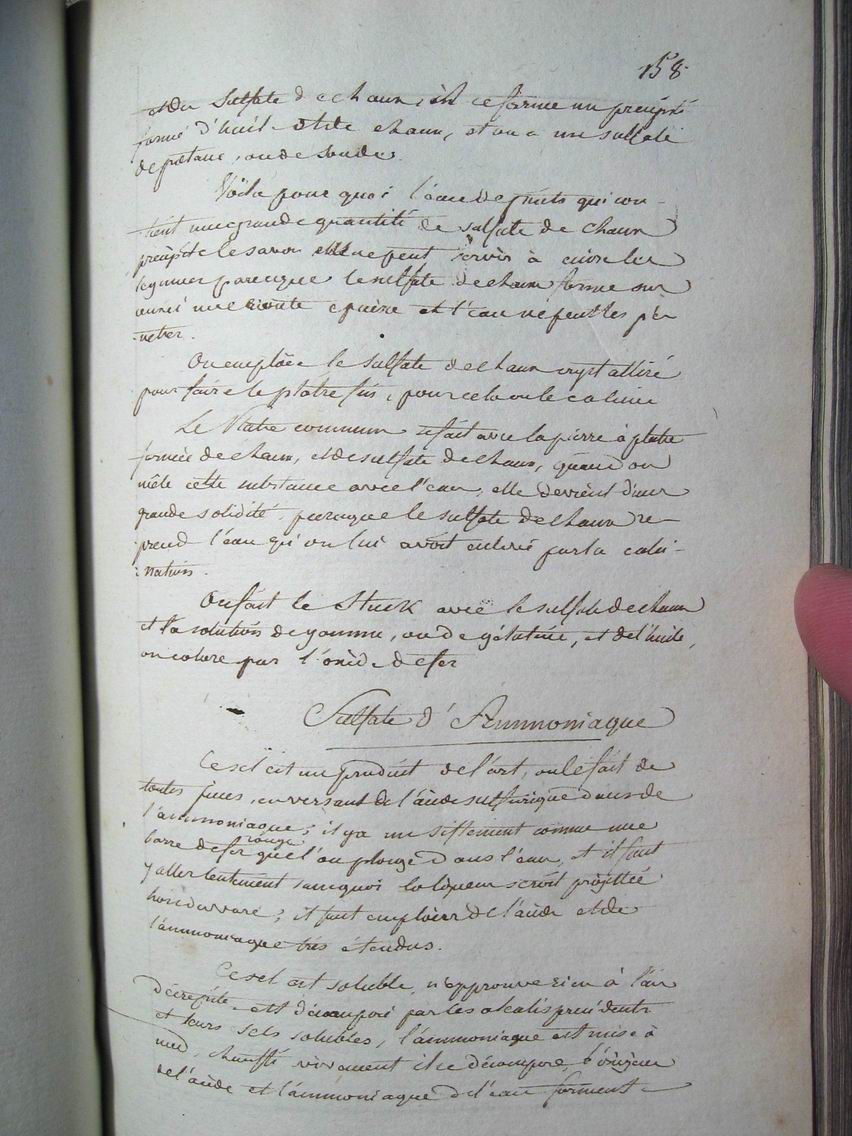 158
et du Sulfate de chaux, il se forme un precipité
formé d'huil et de chaux, et on a un sulfate
de potasse, ou de soude.
Voila pour quoi l'eau de puits qui con-
tient une grande quantité de sulfate de chaux
precipite le savon elle ne peut servir à cuire les
legumes parceque le sulfate de chaux forme sur
une croute epaise et l'eau ne peut les pén
netrer.
On emploie le sulfate de chaux crystallizé
pour faire le platre fin, pour cela on le calcine
Le Platre commun se fait avec la pierre à platre
formée de chaux, et de sulfate de chaux, quand on
mêle cette substance avec l'eau, elle devient d'une
grande solidité, parceque le sulfate de chaux re-
prend l'eau qu'on lui avoit enlevé par la calci-
nation.
On fait le Stuck avec le sulfate de chaux
et la solution de gomme, ou de gélatine, et de l'huile,
on colore par l'oxide de fer
Sulfate d'Ammoniaque
Ce sel est un produit de l'art, on le fait de
toutes pieces, en versant de l'acide sulfurique dans de
l'ammoniaque; il y a un siflement comme une
rouge
barre de fer que l'on plonge dans l'eau, et il faut
y aller lentement sans quoi la liqueur seroit projettée
hors du vase; il faut emploier de l'acide et de
l'ammoniaque très étendus.
Ce sel est soluble, n'epprouve rien à l'air
décrepite est décomposé par les alcalis precidents
et leurs sels solubles, l'ammoniaque est mise à
nud, chauffé vivement il se décompose, l'oxigène
de l'acide et l'ammoniaque de l'eau forment